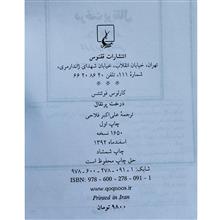 انتشارات ققنوس
تهران، خیابان انقلاب، خیابان شهدای ژاندارمری،
شماره ۱۱۱، تلفن ۴۰ ۸۶ ۴۰ ۶۶
کارلوس فوئنتس
درخت پرتقال
ترجمهٔ علی‌اکبر فلاحی
چاپ اول
۱۶۵۰ نسخه
اسفندماه ۱۳۹۲
چاپ شمشاد
حق چاپ محفوظ است
شابک: ۱ - ۰۹۱ - ۲۷۸ - ۶۰۰ - ۹۷۸
ISBN: 978 - 600 - 278 - 091 - 1
www.qoqnoos.ir
Printed in Iran
۹۸۰۰ تومان